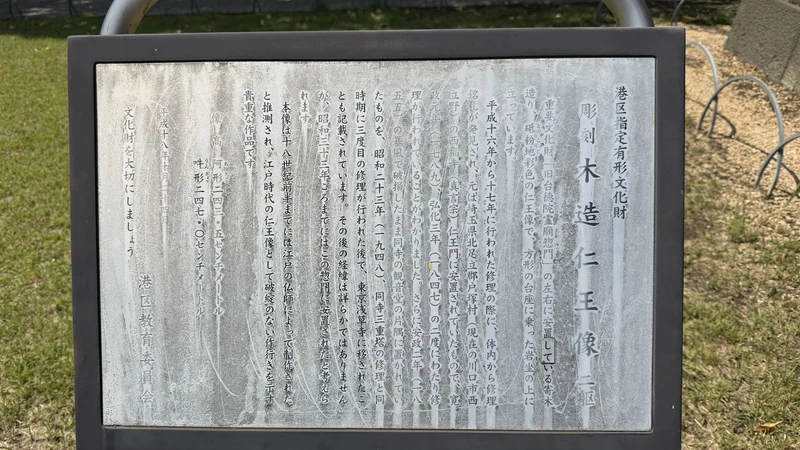 港区指定有形文化財
彫刻 木造仁王像 二躯
重要文化財「旧台徳院霊廟惣門」の左右に安置している寄木
造り、砥粉地彩色の仁王像で、方形の台座に乗った岩坐の上に
立っています。
平成十六年から十七年に行われた修理の際に、体内から修理
銘札が発見され、元は埼玉県北足立郡戸塚村(現在の川口市西
立野)の西福寺(真言宗)仁王門に安置されていたもので、寛
政元年(一七八九)、弘化三年(一八四七)の二度にわたり修
理が行われていることがわかりました。さらに安政二年(一八
五五)の大風で破損したまま同寺の観音堂の片隅に置かれてい
たものを、昭和二十三年(一九四八)、同寺三重塔の修理と同
時期に三度目の修理が行われた後で、東京浅草寺に移されたこ
とも記載されています。その後の経緯は詳らかではありません
が、昭和三十三年ごろまでにはこの惣門に安置されたと考えら
れます。
本像は十八世紀前半までには江戸の仏師によって制作された
と推測され、江戸時代の仁王像として破綻のない作行きを示す
貴重な作品です。
像高 阿形二四三・五センチメートル
吽形二四七・〇センチメートル
平成十八年十月二十
文化財を大切にしましょう
港区教育委員会